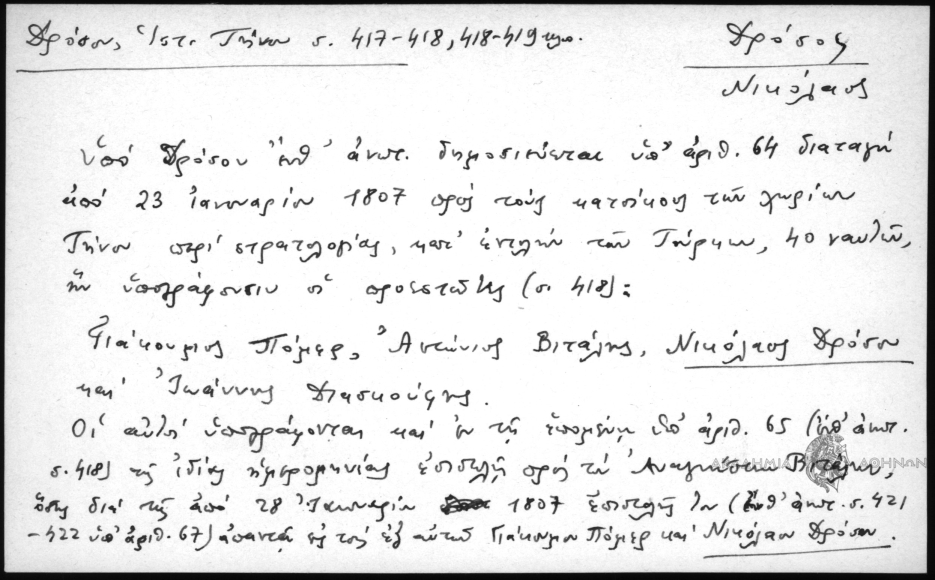 Δρόσου, Ἱστ. Τήνου σ. 417-418, 418-419 κλπ.
Δρόσος
Νικόλαος
Ὑπό Δρόσου ἔνθ' ἀνωτ. δημοσιεύεται ὑπ' ἀριθ. 64 διαταγή
ἀπό 23 Ἰανουαρίου 1807 πρός τούς κατοίκους τῶν χωρίων
Τήνου περί στρατολογίας, κατ' ἐντολήν τῶν Τούρκων, 40 ναυτῶν,
ἥν ὑπογράφουσιν οἱ προεστῶτες (σ. 418):
Γιάκουμος Πώμερ, Ἀντώνιος Βιτάλης, Νικόλαος Δρόσου
καί Ἰωάννης Διασκούφης.
Οἱ αὐτοί ὑπογράφονται καί ἐν τῇ ἑπομένῃ ὑπ' ἀριθ. 65 (ἔνθ' ἀνωτ.
σ. 418) τῆς ἰδίας ἡμερομηνίας ἐπιστολῇ πρός τόν Ἀναγνώστην Βιτάλην,
ὅστις διά τῆς ἀπό 28 Ἰανουαρίου 1807 ἐπιστολῆς του (ἔνθ' ἀνωτ. σ. 421
-422 ὑπ' ἀριθ. 67) ἀπαντᾷ εἰς τούς ἐξ αὐτῶν Γιάκουμον Πώμερ καί Νικόλαον Δρόσου.
ΑΚΑΔΗΜΙΑ ΑΘΗΝΩΝ